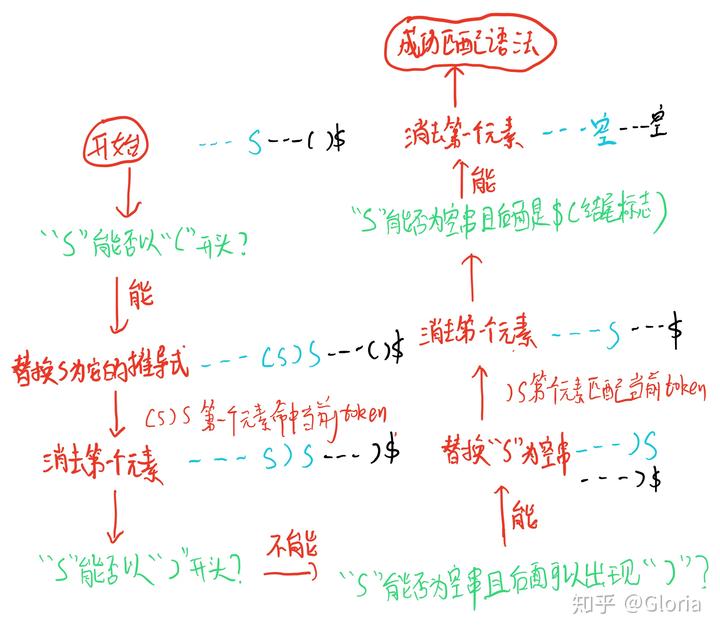 开始
---- S ---- ( ) $
“S”能否以“(”开头?
能
替换S为它的推导式 ---- (S)S ---- ( ) $
(S)S 第一个元素命中当前token
消去第一个元素 ---- S)S ---- ) $
“S”能否以“)”开头?
不能
“S”能否为空串且后面可以出现“)”?
能
替换“S”为空串 ---- )S
---- ) $
)S第一个元素匹配当前token
消去第一个元素 ---- S ---- $
“S”能否为空串且后面是$(结尾标志)
能
消去第一个元素 ---- 空 ---- 空
成功匹配语法
知乎 @Gloria